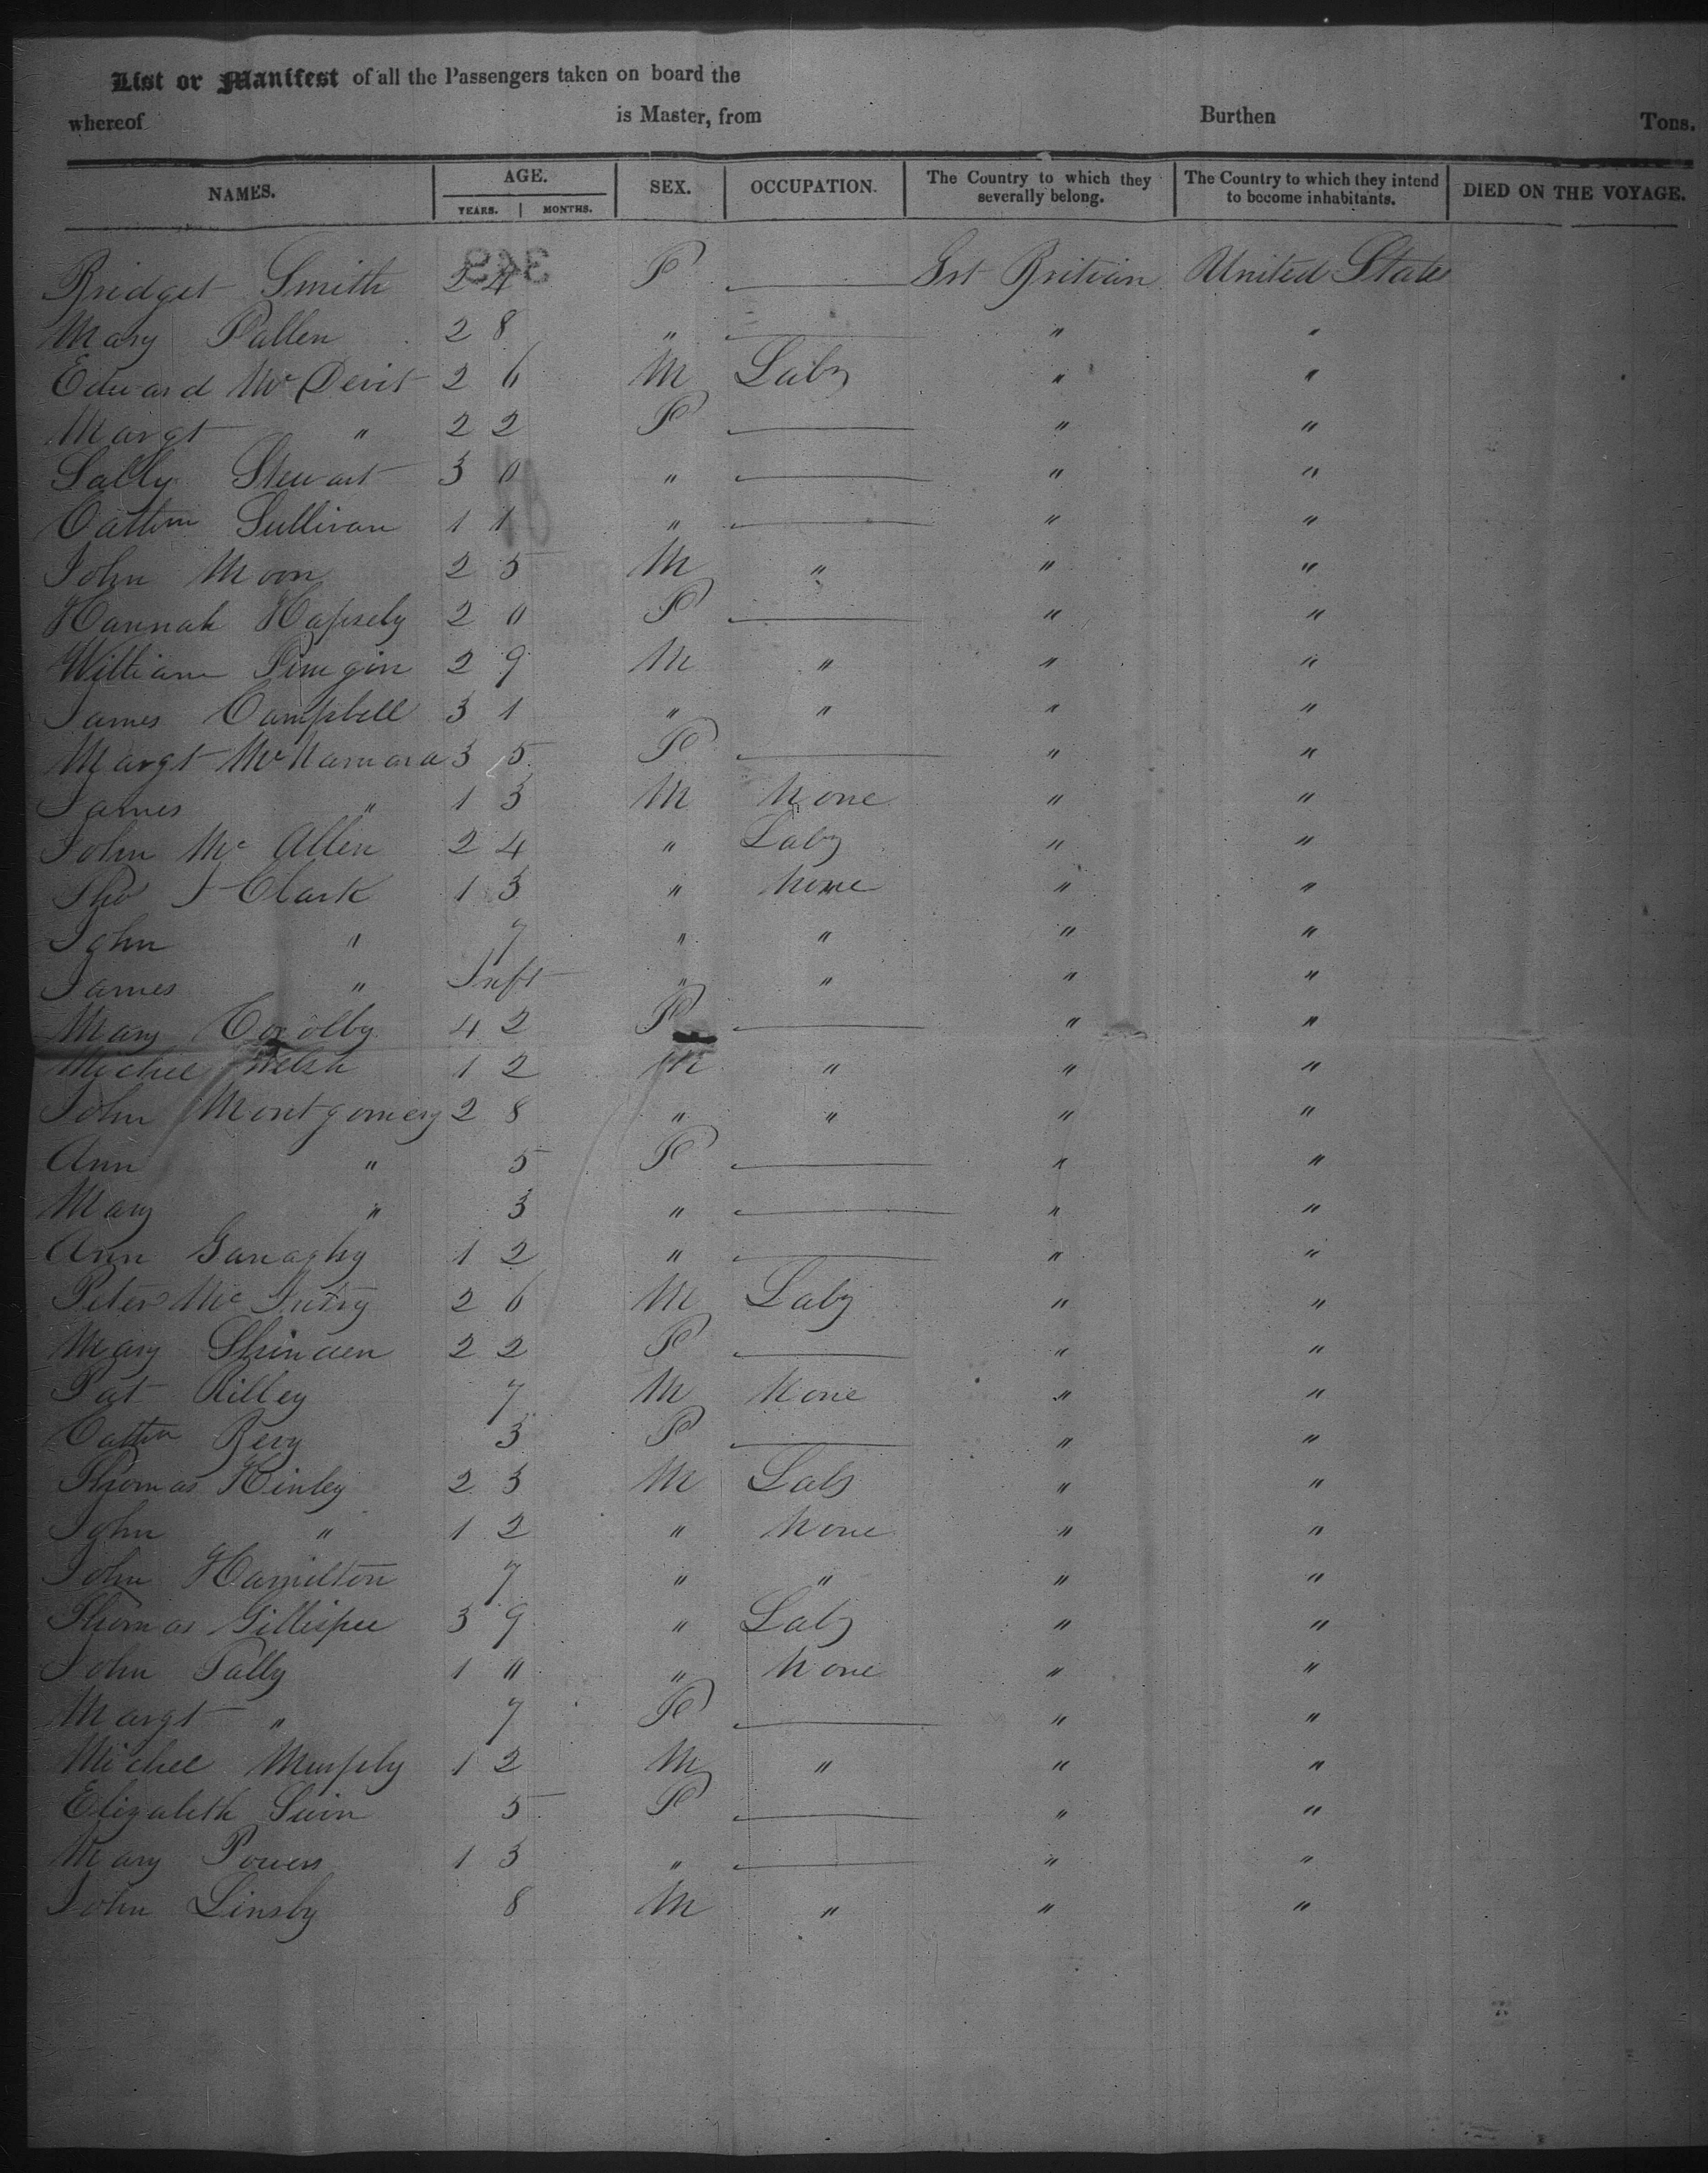 List or Manifest of all the Passengers taken on board the
whereof is Master, from Burthen Tons.
NAMES. AGE. YEARS. MONTHS. SEX. OCCUPATION. The Country to which they severally belong. The Country to which they intend to become inhabitants. DIED ON THE VOYAGE.
Bridget Smith 24 F — Grt Britian United State
Mary Pallen 28 " — " "
Edward McDevit 26 M Labr " "
Margt " 22 F — " "
Sally Stewart 30 " — " "
Cathm Sullivan 11 " — " "
John Moon 25 M " " "
Hannah Hapsely 20 F — " "
William 29 M " " "
James Campbell 31 " " " "
Margt McNamara 35 F — " "
James " 13 M None " "
John Mc Allen 24 " Labr " "
Tho J Clark 13 " None " "
John " 7 " " " "
James " Inft " " " "
Mary 42 F — " "
Michel Welsh 12 M " " "
John Montgomery 28 " " " "
Ann " 5 F — " "
Mary " 3 " — " "
Ann Ganaghy 12 " — " "
Peter Mc 26 M Labr " "
Mary 22 F — " "
Pat Rilley 7 M None " "
Cathn 3 F — " "
Thomas Hinley 23 M Labr " "
John " 12 " None " "
John Hamilton 7 " " " "
Thomas Gillispee 39 " Labr " "
John Tally 1 " " None " "
Margt " 7 F — " "
Michel Murphy 12 M " " "
Elizabeth 5 F — " "
Mary Powers 13 " — " "
John Linsby 8 M " " "